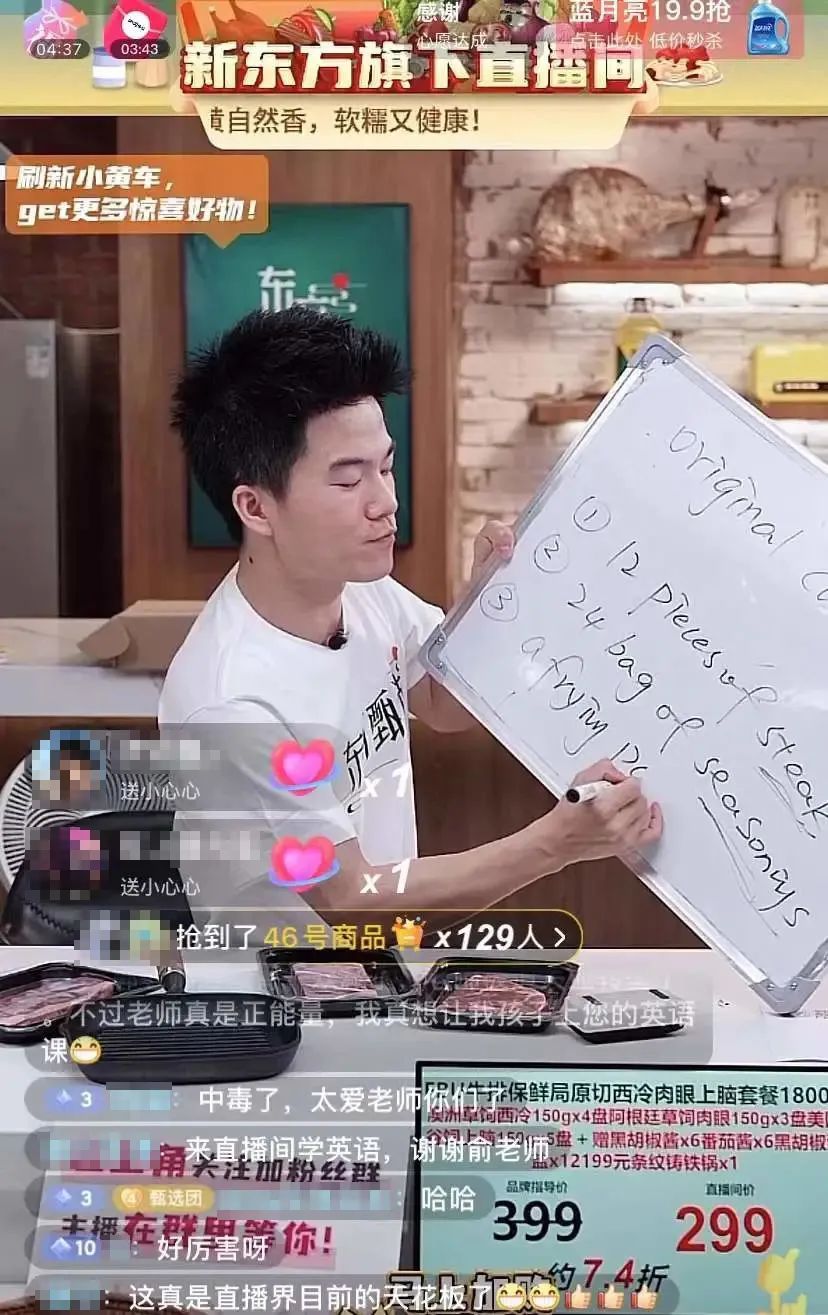 04:37
03:43
感谢
心愿达成
蓝月亮19.9抢
点击此处 低价秒杀
新东方旗下直播间
自然香，软糯又健康！
刷新小黄车，
get更多惊喜好物！
东
original
① 12 pieces of steak
② 24 bag of seasonings
③ a frying
东 甄
送小心心
x 1
送小心心
x 1
抢到了 46号商品 x129人 >
。不过老师真是正能量，我真想让我孩子上您的英语
课😁
3 ：中毒了，太爱老师你们了
：来直播间学英语，谢谢俞老师
关注加粉丝群
3 甄选团 ：哈哈
主播在群里等你！
10 ：好厉害呀
：这真是直播界目前的天花板了😂😂👍👍👍
牛排保鲜局原切西冷肉眼上脑套餐1800
澳洲草饲西冷150gx4盘阿根廷草饲肉眼150gx3盘美
谷饲上脑150gx5盘 + 赠黑胡椒酱x6番茄酱x6黑胡椒
x12199元条纹铸铁锅x1
品牌指导价
直播间价
399
299
约7.4折